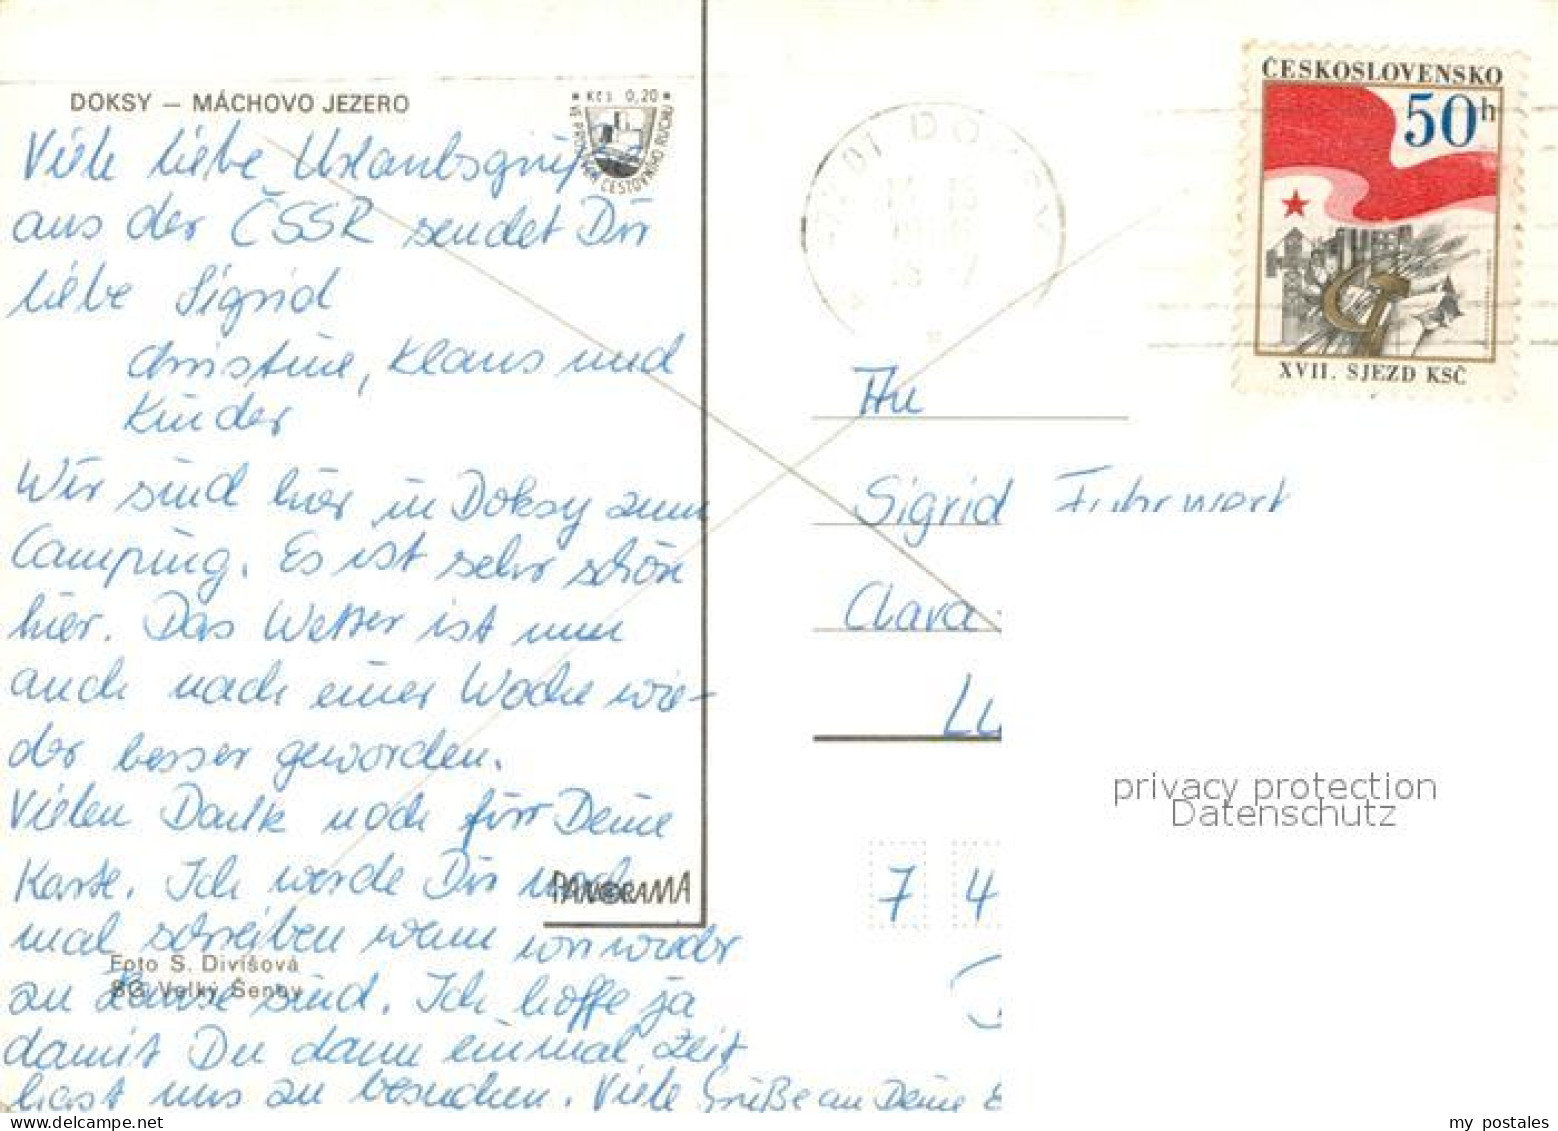 DOKSY – MÁCHOVO JEZERO
Viele liebe Urlaubsgrüße
aus der ČSSR sendet Dir
liebe Sigrid
Christine, Klaus und
Kinder
Wir sind hier in Doksy zum
Camping. Es ist sehr schön
hier. Das Wetter ist nun
auch nach einer Woche wie-
der besser geworden.
Vielen Dank noch für Deine
Karte. Ich werde Dir noch
mal schreiben wenn wir wieder
zu Hause sind. Ich hoffe ja
damit Du dann einmal Zeit
hast uns zu besuchen. Viele Grüße an Deine E
PANORAMA
Foto S. Divišová
SG Velký Šenov
* Kčs 0,20 *
VE PROSPĚCH CESTOVNÍHO RUCHU
ČESKOSLOVENSKO
50h
XVII. SJEZD KSČ
An
Sigrid Fuhrwert
Clara-
Lu
7 4
privacy protection
Datenschutz
my postales